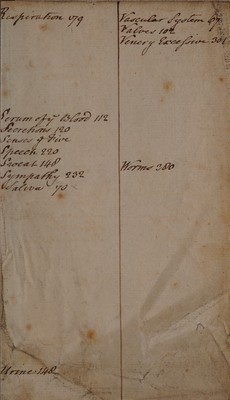 Respiration 179
Serum of ye Blood 112
Secretions 120
Senses ye Five
Speech 220
Sweat 148
Sympathy 232
Saliva 70
Urine 148
Vascular System
Valves 104
Venery Excessive 301
Worms 360